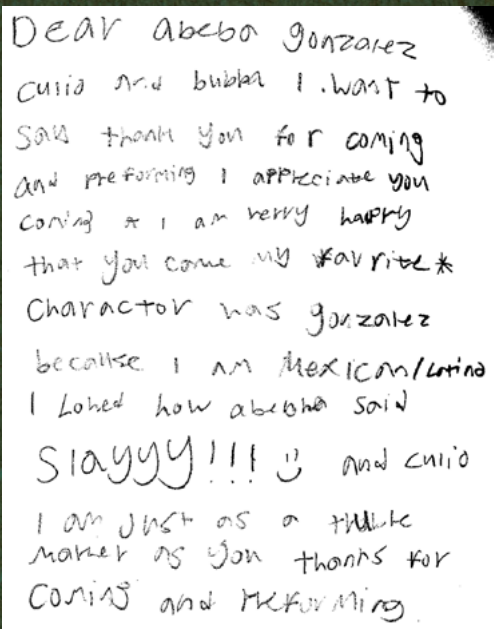 Dear abeba gonzalez
Culio and bubba I. want to
say thank you for coming
and preforming I appreciate you
coming * I am verry happy
that you come my *favrite*
Charactor was gonzalez
because I am Mexican/Latina
I Loved how abebha said
Slayyy!!! and culio
I am just as a
maker as you thanks for
Coming and Preforming